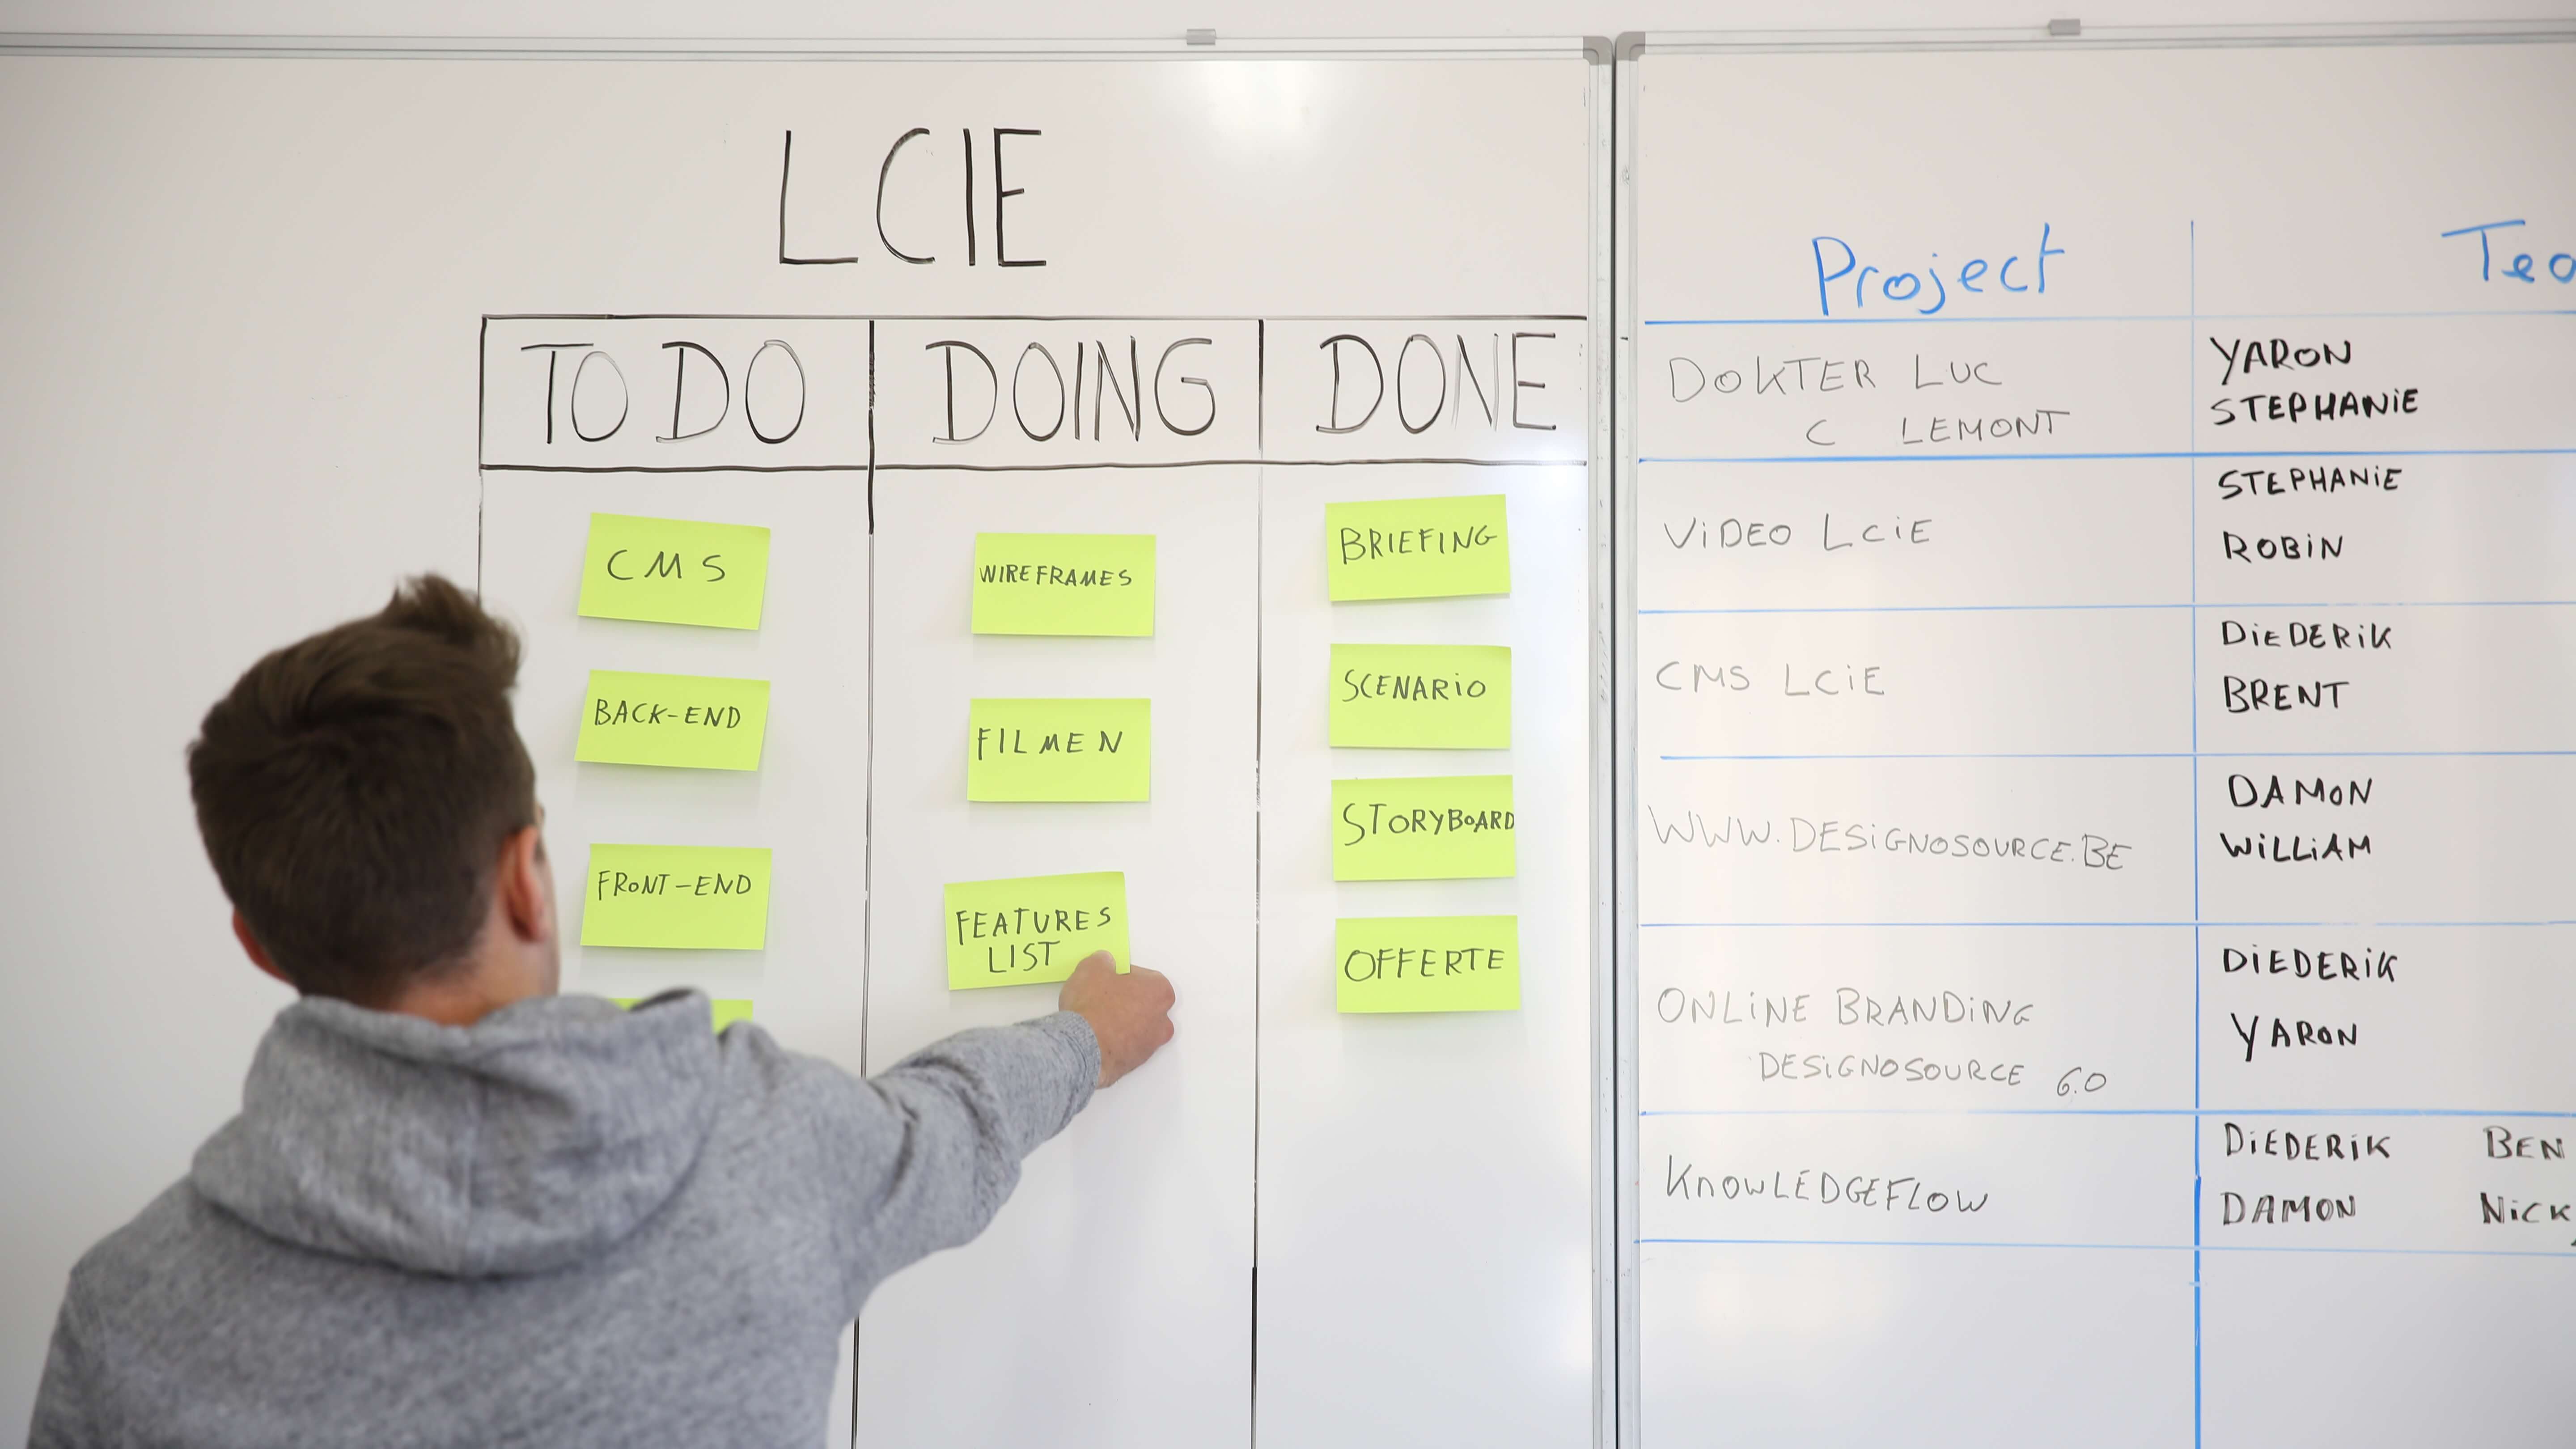 LCIE
TO DO
DOING
DONE
CMS
BACK-END
FRONT-END
WIREFRAMES
FILMEN
FEATURES
LIST
BRIEFING
SCENARIO
STORYBOARD
OFFERTE
Project
DOKTER LUC
C LEMONT
YARON
STEPHANIE
VIDEO LCIE
STEPHANIE
ROBIN
CMS LCIE
DIEDERIK
BRENT
WWW.DESIGNOSOURCE.BE
DAMON
WILLIAM
ONLINE BRANDING
DESIGNOSOURCE 6.0
DIEDERIK
YARON
KNOWLEDGEFLOW
DIEDERIK BEN
DAMON NICK